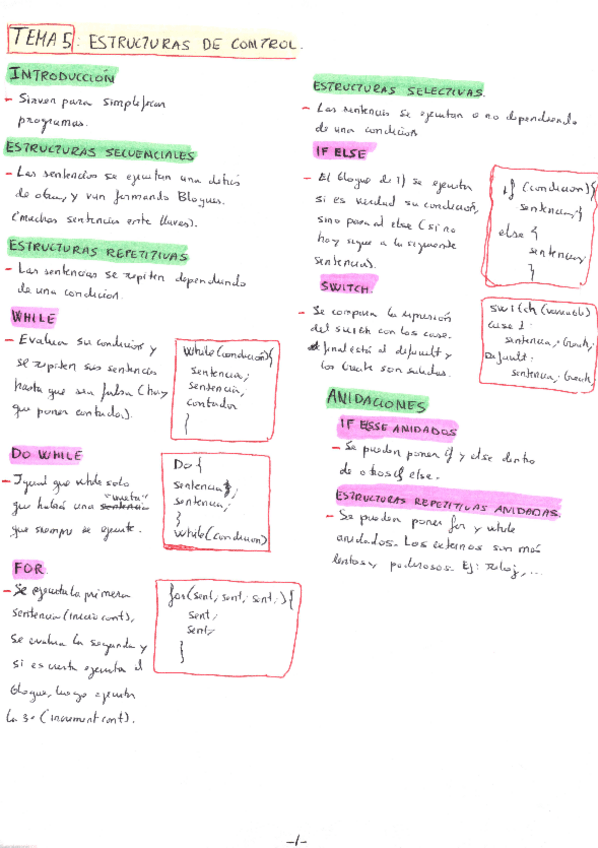 TEMA 5: ESTRUCTURAS DE CONTROL.
INTRODUCCIÓN
- Sirven para simplificar
programas.
ESTRUCTURAS SECUENCIALES
- Las sentencias se ejecutan una detrás
de otra, y van formando Bloques.
(muchas sentencias entre llaves).
ESTRUCTURAS REPETITIVAS
- Las sentencias se repiten dependiendo
de una condicion.
WHILE
- Evaluan su condicion y
se repiten sus sentencias
hasta que sea falsa (hay
que poner contador).
while(condición){
sentencia;
sentencia;
contador
}
DO WHILE
- Igual que while solo
"meta"
que habrá una sentencia
que siempre se ejecute.
Do {
sentencia;
sentencia;
}
while(condicion)
FOR
- Se ejecuta la primera
sentencia (inicio cont),
se evalua la segunda y
si es cierta ejecuta el
bloque, luego ejecuta
la 3ª (increment cont).
for(sent, sent, sent,){
sent;
sent;
}
ESTRUCTURAS SELECTIVAS.
- Las sentencias se ejecutan o no dependiendo
de una condicion
IF ELSE
- El bloque de if se ejecuta
si es verdad su condición,
sino pasa al else (si no
hay sigue a la siguiente
sentencia).
if (condicion){
sentencias}
else {
sentencias
}
SWITCH.
- Se compara la expresión
del switch con los case.
Al final está el default y
los break son salidas.
switch (variable)
case 1:
sentencia; break;
Default:
sentencia; break
ANIDACIONES
IF ESSE ANIDADOS
- Se pueden poner if y else dentro
de otros if else.
ESTRUCTURAS REPETITIVAS ANIDADAS.
- Se pueden poner for y while
anidados. Los externos son más
lentos y poderosos. Ej: reloj, ...
-1-